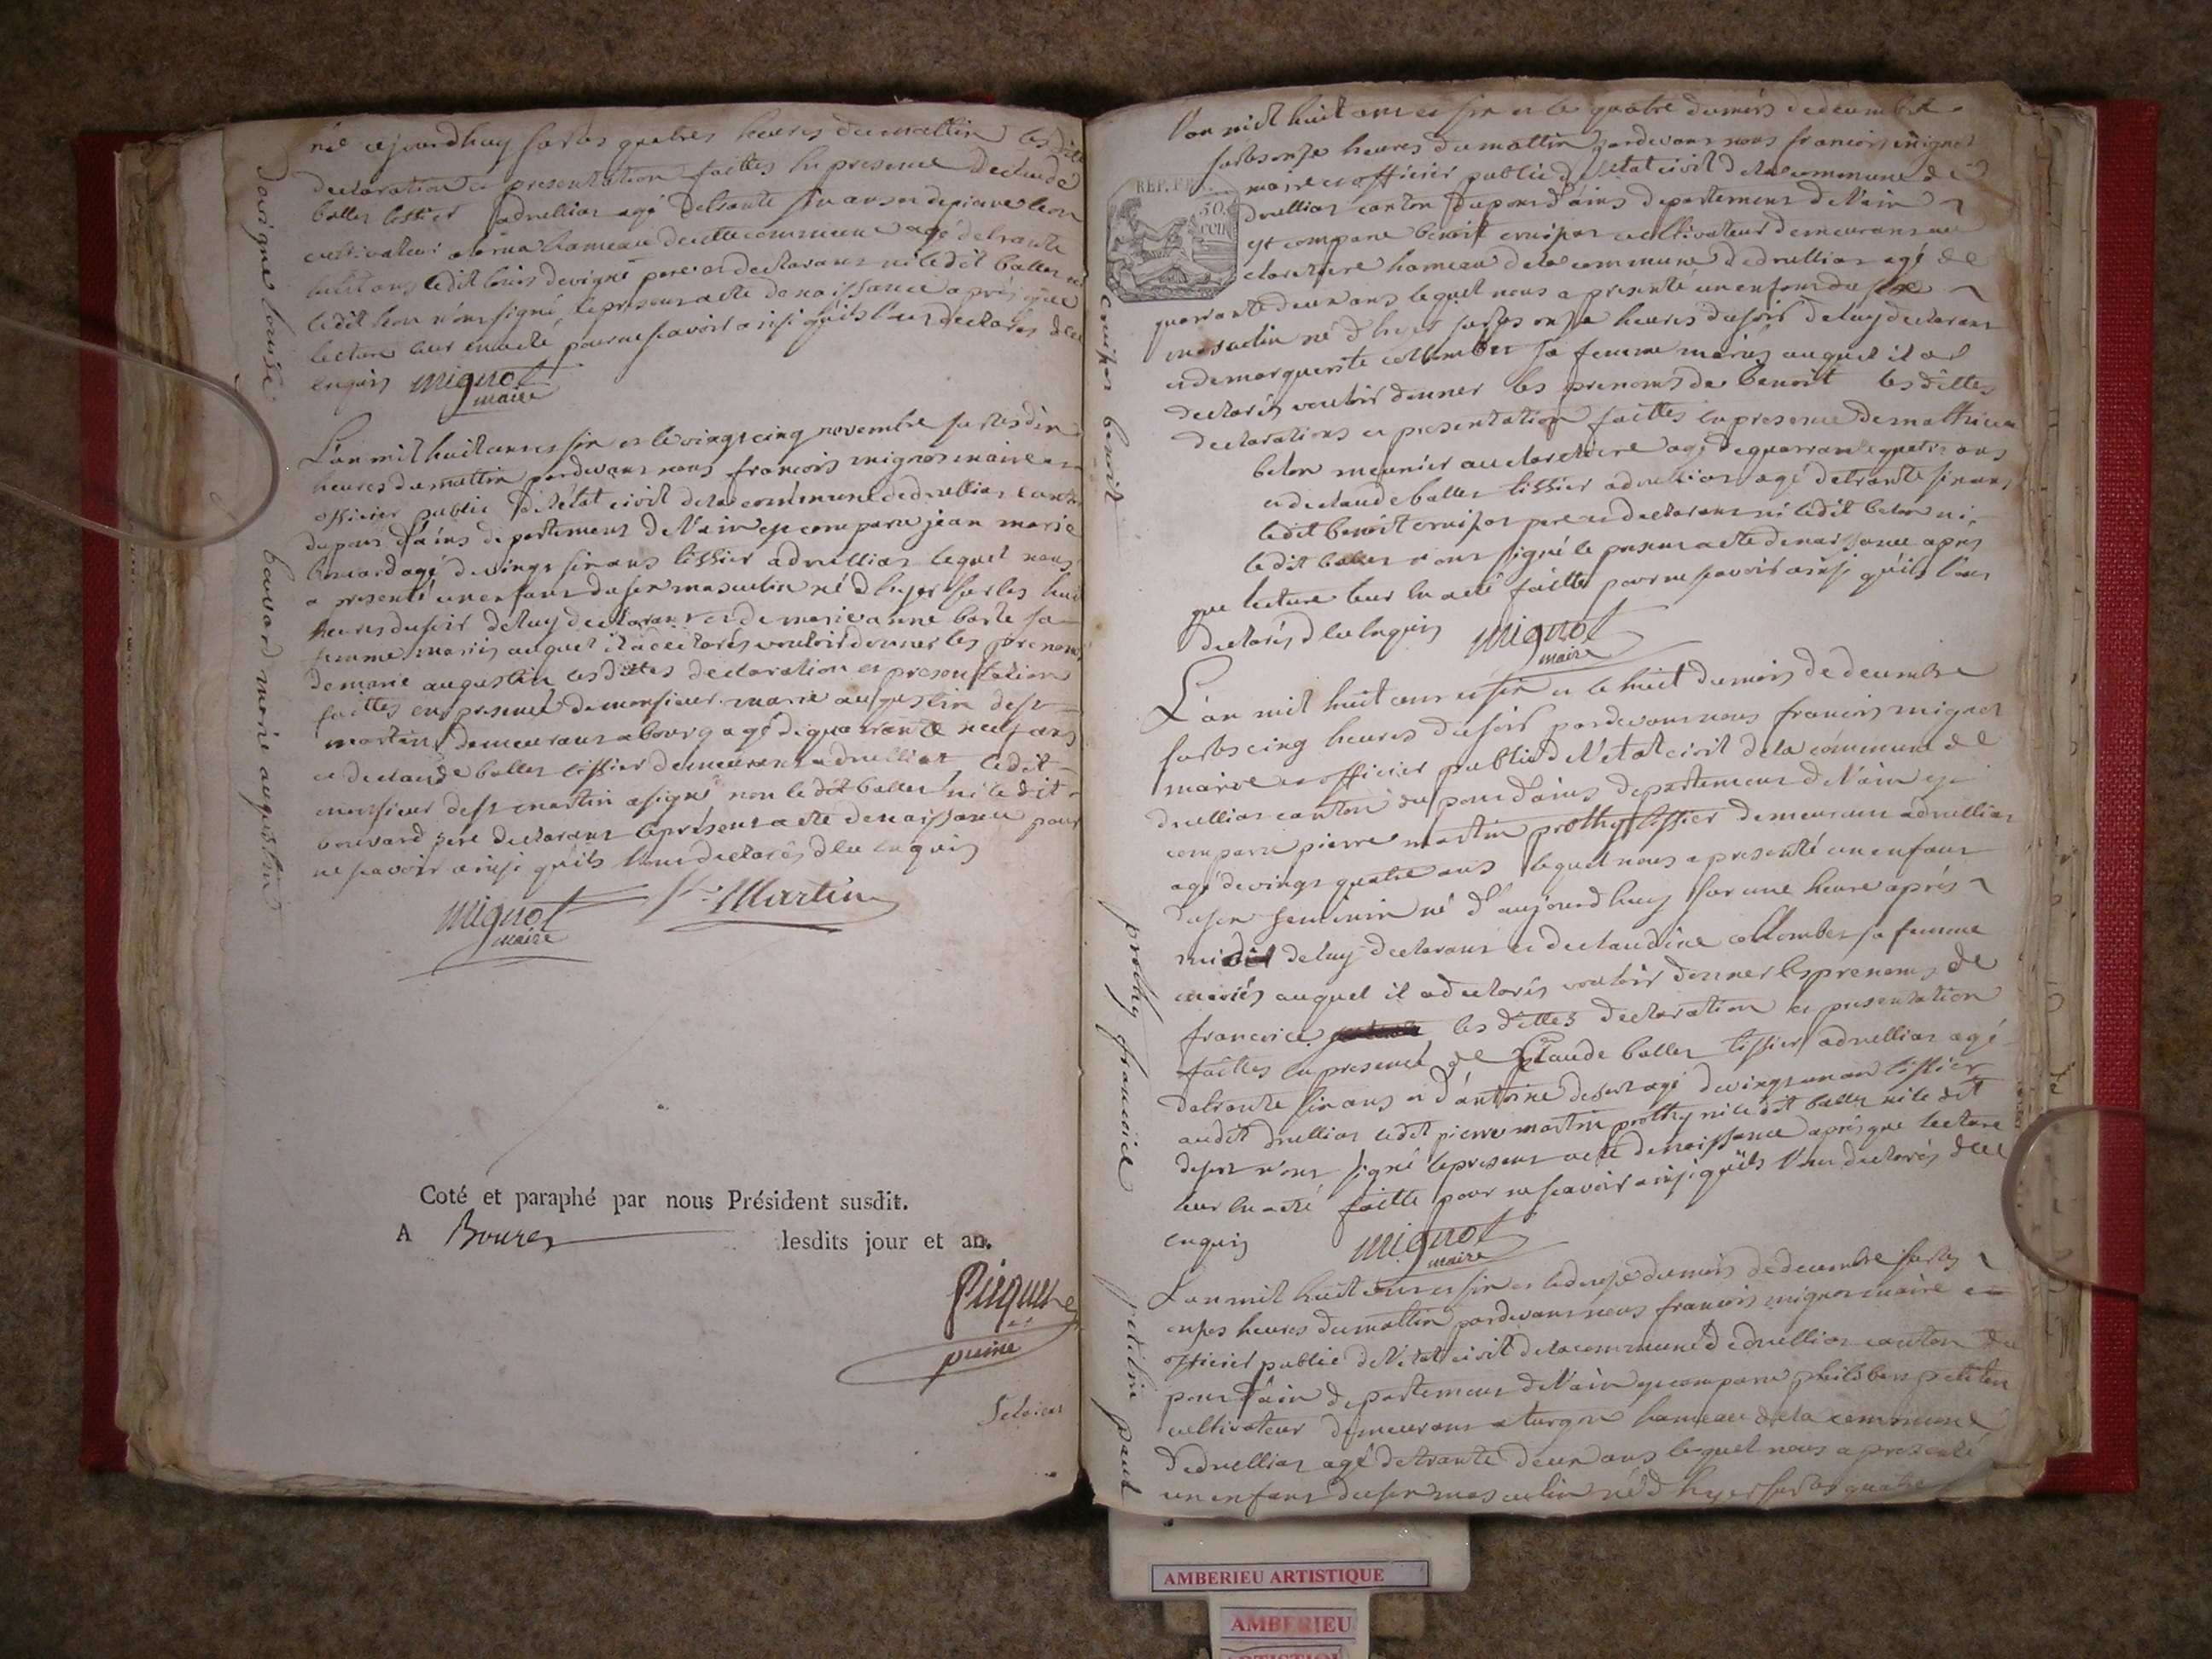 né aujourdhuy sur les quatres heures du mattin les dites
declaration et presentation faittes en presence de claude
ballet tissier a druillias agé de trante six ans et de pierre leon
cultivateur a hameau de cette commune agé de trante
huit ans ledit louis devigne pere et declarant ni ledit ballet ni
ledit leon n'ont signé le present acte de naissance après que
lecture leur en a eté pour ne scavoir ainsi qu'ils l'ont declarés de ce
enquis mignot
maire
davigne louise
L'an mil huit cent et six et le vingt cinq novembre sur les dix
heures du mattin pardevant nous francois mignot maire et
officier public de l'état civil de la commune de druillias canton
du pont d'ains departement de l'ain est comparu jean marie
bouvard agé de vingt six ans tissier a druillias lequel nous
a presenté un enfant du sex masculin né d'hyer sur les huit
heures du soir de luy declarant et de marie anne baste sa
femme mariés auquel il a declarés vouloir donner les prenoms
de marie augustin les dittes declaration et presentation
faittes en presence de monsieur marie augustin de st
martin demeurant a bourg agé de quarrante neuf ans
et de claude ballet tissier demeurant a druillias ledit
monsieur de st martin a signé non le dit ballet ni le dit
bouvard pere declarant le présent acte de naissance pour
ne scavoir ainsi qu'ils l'ont declarés de ce enquis
mignot St. Martin
maire
bouvard marie augustin
Coté et paraphé par nous Président susdit.
A Bourg lesdits jour et an.
Picquet
L'an mil huit cent et six et le quatre du mois de decembre
sur les onze heures du mattin pardevant nous francois mignot
maire et officier public de l'état civil de la commune de
REP. FRA.
50
cen
druillias canton du pont d'ains departement de l'ain
est comparu benoit cruipot cultivateur demeurant au
claretiere hameau de la commune de druillias agé de
quarrante deux ans lequel nous a presenté un enfant du sexe
masculin né d'hyer sur les onze heures du soir de luy declarant
et de marguerite collombet sa femme mariés auquel il a
declarés vouloir donner les prenoms de benoit les dittes
declarations et presentation faittes en presence de matthieu
belon meunier au claretiere agé de quarrante quatre ans
et de claude ballet tissier a druillias agé de trante six ans
ledit benoit cruipot pere et declarant ni ledit belon ni
ledit ballet n'ont signé le present acte de naissance apres
que lecture leur en a eté faitte pour ne scavoir ainsi qu'ils l'ont
declarés de ce enquis mignot
maire
cruipot benoit
L'an mil huit cent et six et le huit du mois de decembre
sur les cinq heures du soir pardevant nous francois mignot
maire et officier public de l'état civil de la commune de
druillias canton du pont d'ains departement de l'ain est
comparu pierre martin prothy tissier demeurant a druillias
agé de vingt quatre ans lequel nous a presenté un enfant
du sex feminin né d'aujourdhuy sur une heure aprés
midi de luy declarant et de claudine collombet sa femme
mariés auquel il a declarés vouloir donner les prenoms de
francoise les dittes declaration et presentation
faittes en presence de Claude ballet tissier a druillias agé
de trante six ans et d'antoine desert agé de vingt un an tissier
audit druillias ledit pierre martin prothy ni le dit ballet ni le dit
desert n'ont signé le present acte de naissance aprés que lecture
leur en a eté faitte pour ne scavoir ainsi qu'ils l'ont declarés de ce
enquis mignot
maire
prothy francoise
L'an mil huit cent et six et le douze du mois de decembre sur les
onzes heures du mattin pardevant nous francois mignot maire et
officier public de l'état civil de la commune de druillias canton du
pont d'ain departement de l'ain est comparu philibert petitlin
cultivateur demeurant a turgon hameau de la commune
de druillias agé de trante deux ans lequel nous a presenté
un enfant du sex masculin né d'hyer sur les quatre
petitlin paul
AMBERIEU ARTISTIQUE
AMBERIEU